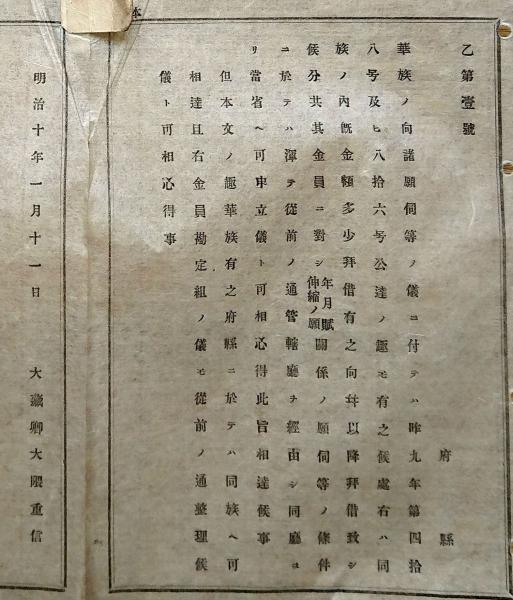 本
乙第壹號
府縣
華族ノ向諸願伺等ノ儀ニ付テハ昨九年第四拾
八号及ヒ八拾六号公達ノ趣モ有之候處右ハ同
族ノ內既金額多少拜借有之向并以降拜借致シ
候分共其金員ニ對シ年月賦伸縮ノ願關係ノ願伺等ノ條件
ニ於テハ渾テ從前ノ通管轄廳ヲ經由シ同廳ヨ
リ當省ヘ可申立儀ト可相心得此旨相達候事
但本文ノ趣華族有之府縣ニ於テハ同族ヘ可
相達且右金員勘定組ノ儀モ從前ノ通整理候
儀ト可相心得事
明治十年一月十一日 大藏卿大隈重信